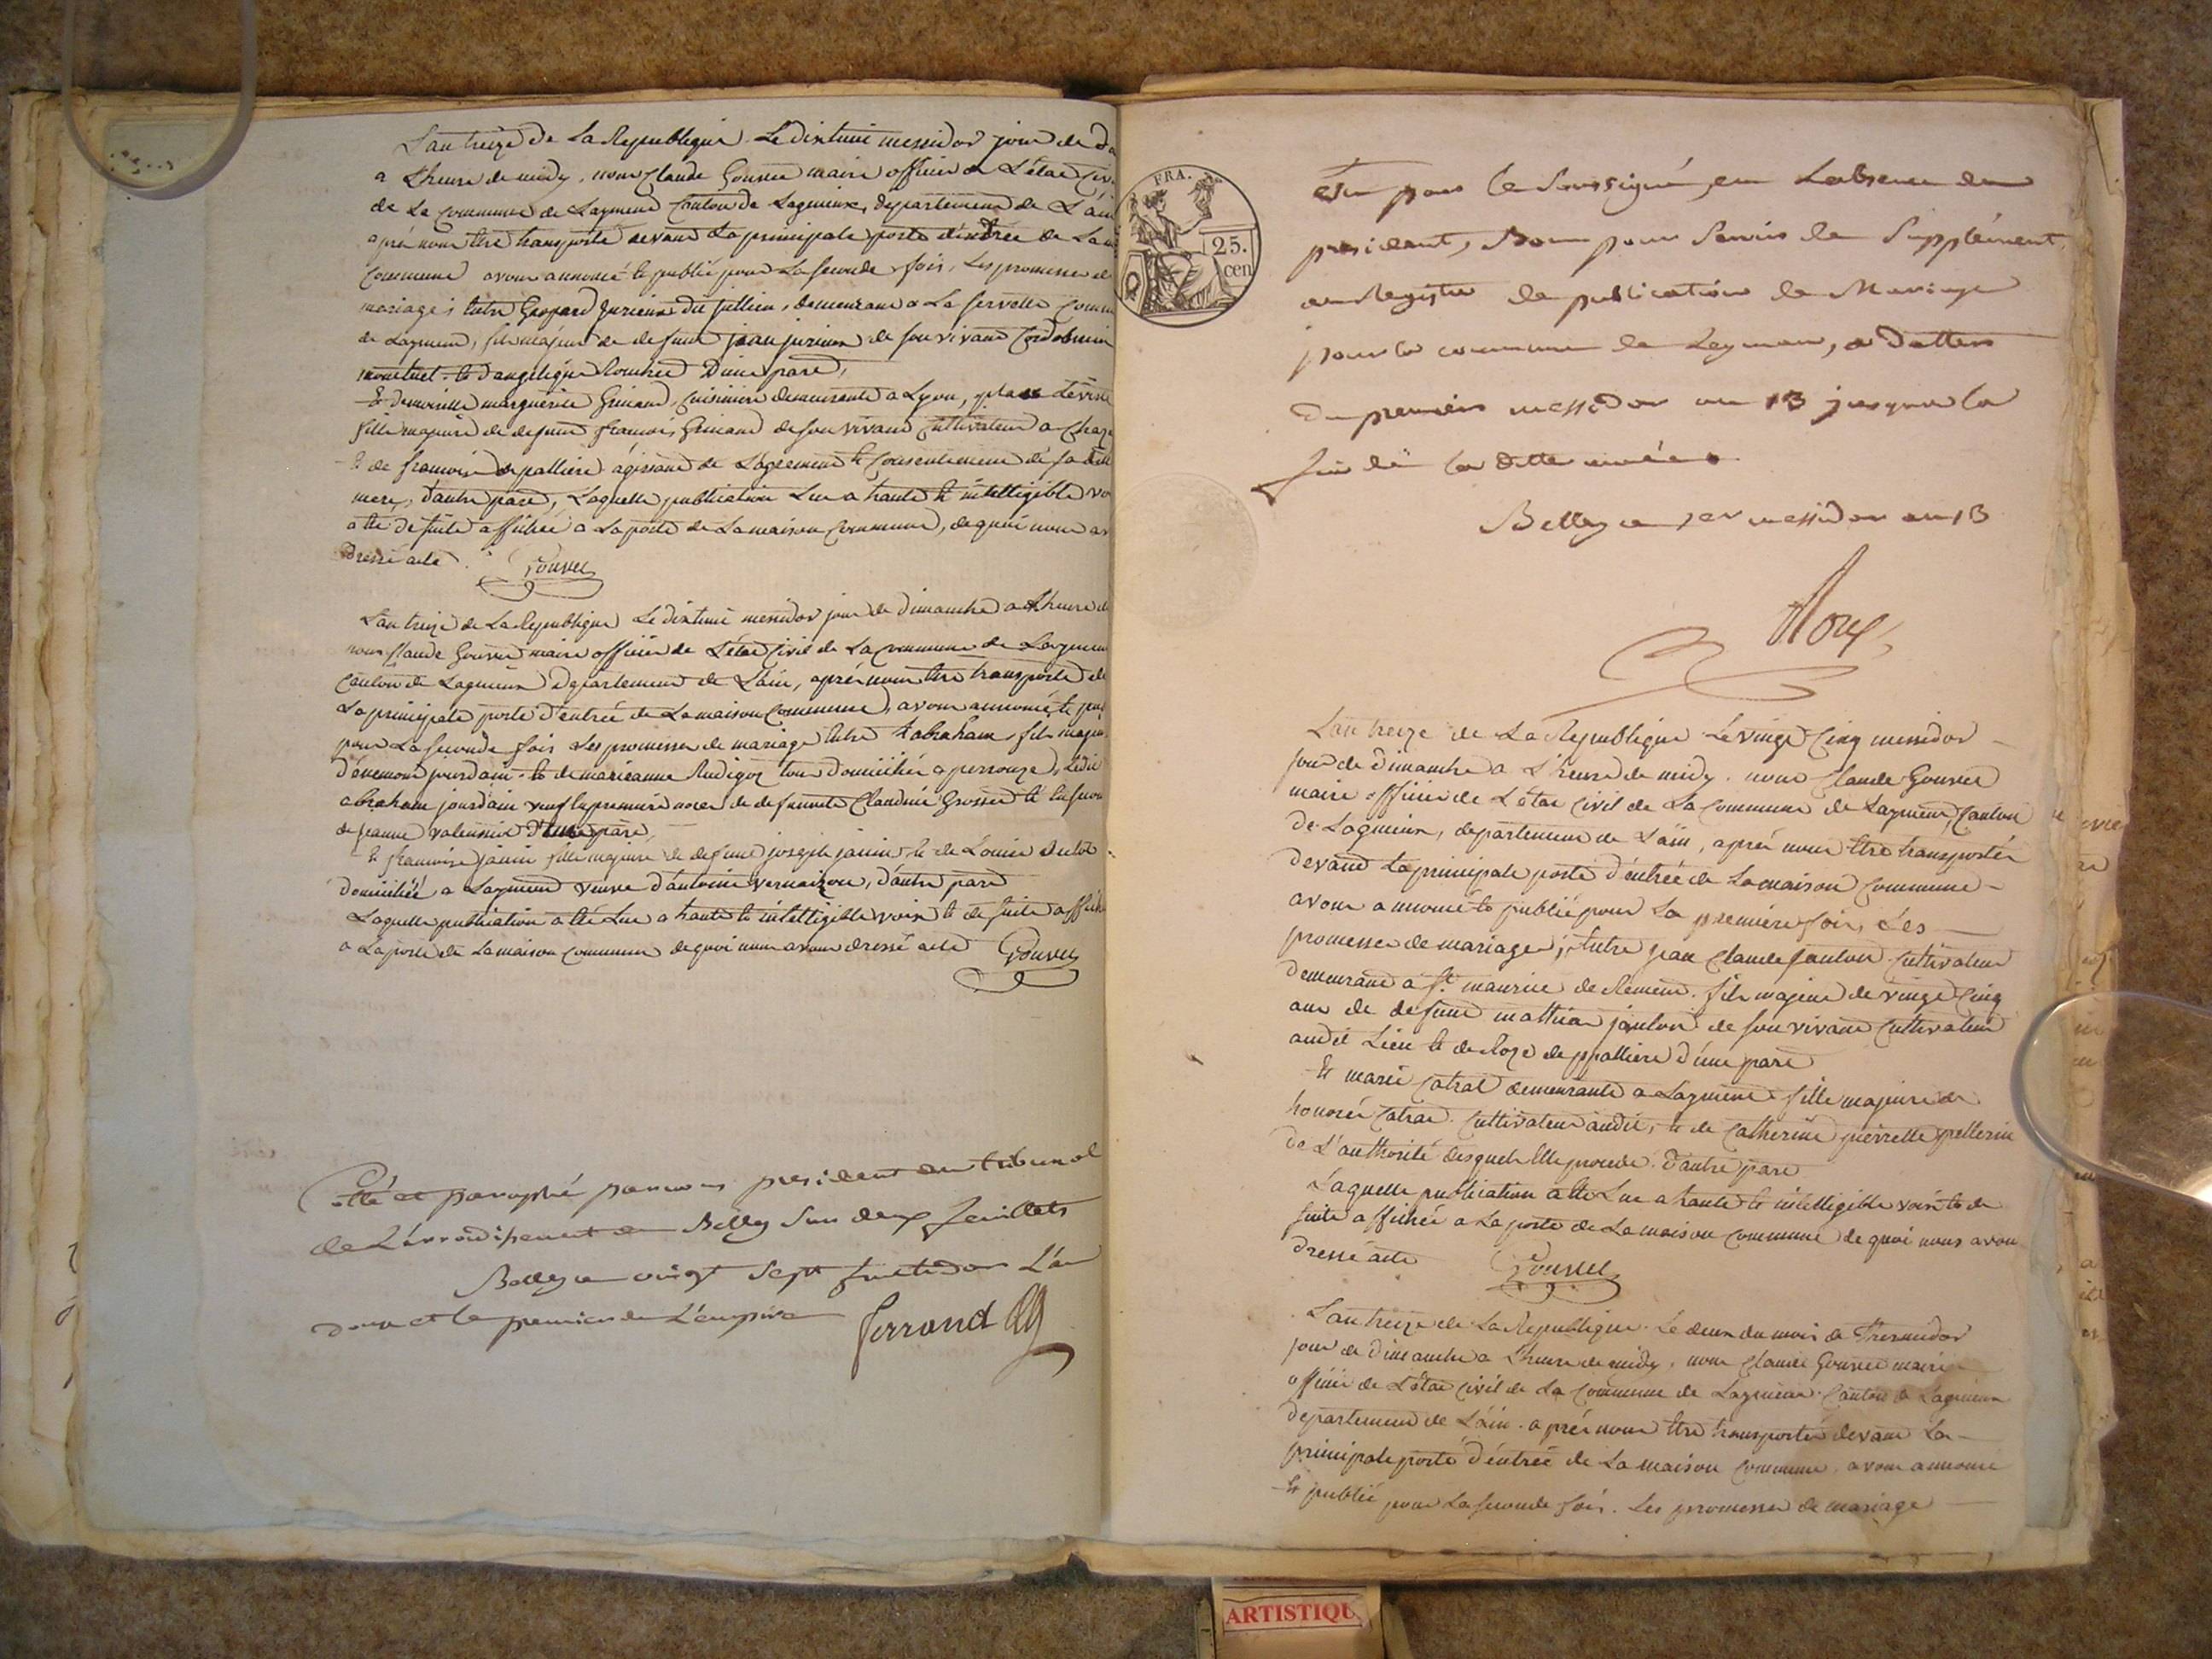 L'an treize de la Republique Le dixhuit messidor jour de
a L'heure de midy, nous Claude Gouvee maire officier de L'état
de la commune de Laymend Canton de Lagnieux, departement de L'ain
aprés nous être transporté devant La principale porte d'entrée de La
Commune avons annoncé et publié pour La seconde fois, Les promesses de
mariage; Entre Gaspard Jurieux dit Jullien, demeurant a La Servette
de Laymend, fils majeur de defunt jean jurieux de son vivant
et d'angelique D'une part,
Et demoiselle marguerite Guinand, Cuisiniere demeurante a Lyon, place
fille majeure de defunt françois Guinand de son vivant Cultivateur a
et de françoise depalliere agissant de L'agrement et Consentement de sa
mere, d'autre part, Laquelle publication Lue a haute et intelligible
a été de suite affichée a La porte de La maison Commune, de quoi nous
Dressé acte.
Gouvee
L'an treize de La Republique Le dixhuit messidor jour de dimanche a L'heure
nous Claude Gouvee maire officier de L'état Civil de La Commune de
Canton de Lagnieux Departement de L'ain, aprés nous être transporté
La principale porte d'entrée de La maison Commune, avons annoncé et
pour La seconde fois Les promesses de mariage Entre abraham, fils
jourdain et de marieanne tous Domiciliés a perrouze, Ledit
abraham jourdain veuf en premiere noces de defunte Claudine Grosset et
de jeanne D'une part,
Et françoise janin fille majeure de defunt joseph janin et de Louise
domiciliée a Laymend veuve d'antoine d'autre part
Laquelle publication a été Lue a haute et intelligible voix et de suite
a La porte de La maison Commune de quoi nous avons dressé acte
Gouvee
Cotté et paraphé par nous president du tribunal
de L'arrondisement de Belley sur deux feuillets
Belley ce vingt sept fructidor L'an
douze et le premier de L'empire
ferrand
FRA.
25.
cen
par le soussigné, en Labsence du
president, Bon pour servir de Supplément
au Registre de publication de Mariage
pour la commune de Leymen, a datter
du premier messidor an 13 jusqu'a la
fin de la ditte année.
Belley ce 1er messidor an 13
L'an treize de La Republique Le vingt Cinq messidor
jour de dimanche a L'heure de midy. nous Claude Gouvee
maire officier de L'état civil de La Commune de Laymend, Canton
de Lagnieux, departement de L'ain, aprés nous être transporté
devant La principale porte d'entrée de La maison Commune
avons annoncé et publié pour La premiere fois, Les
promesses de mariage; Entre jean Claude janton Cultivateur
demeurant a St maurice de Remens. fils majeur de vingt Cinq
ans de defunt mathieu janton de son vivant Cultivateur
audit Lieu et de Roze depalliere d'une part
Et marie Catral demeurante a Laymend fille majeure de
honoré Catral Cultivateur audit, et de Catherine pierrette pellerin
de L'authorité desquels Elle procede. d'autre part
Laquelle publication a été Lue a haute et intelligible voix et de
suite affichée a La porte de La maison Commune de quoi nous avons
dressé acte
Gouvee
L'an treize de La Republique. Le deux du mois de Thermidor
jour de dimanche a L'heure de midy, nous Claude Gouvee maire
officier de L'état civil de La Commune de Laymend Canton de Lagnieux
departement de L'ain. aprés nous être transporté devant La
principale porte d'entrée de La maison Commune, avons annoncé
Et publié pour La seconde fois. Les promesses de mariage
ARTISTIQU